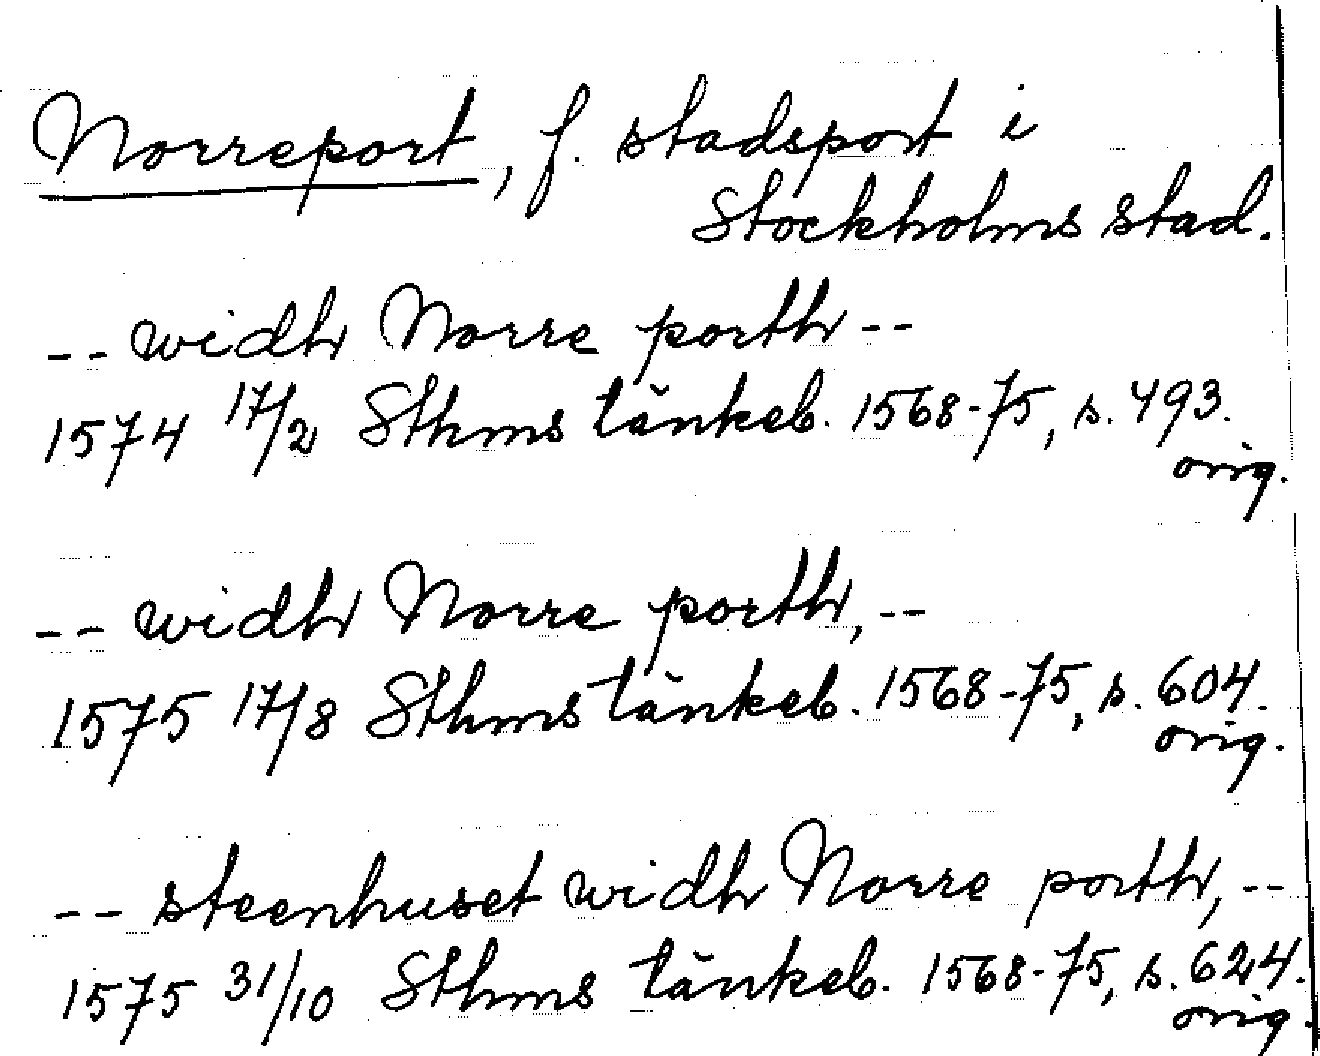 Norreport, f. stadsport i
Stockholms stad.
-- widh Norre porth --
1574 17/2 Sthms tänkeb. 1568-75, s. 493.
orig.
-- widh Norre porth, --
1575 17/8 Sthms tänkeb. 1568-75, s. 604.
orig.
-- steenhuset widh Norre porth, --
1575 31/10 Sthms tänkeb. 1568-75, s. 624.
orig.